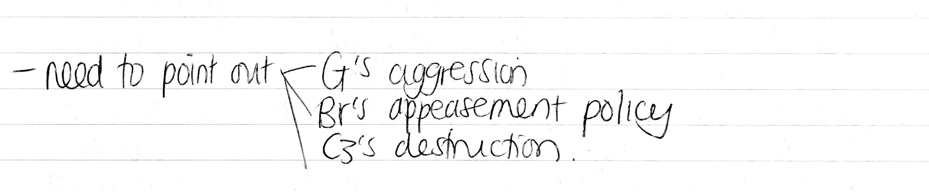 - need to point out - G's aggression
Br's appeasement policy
Cz's destruction.